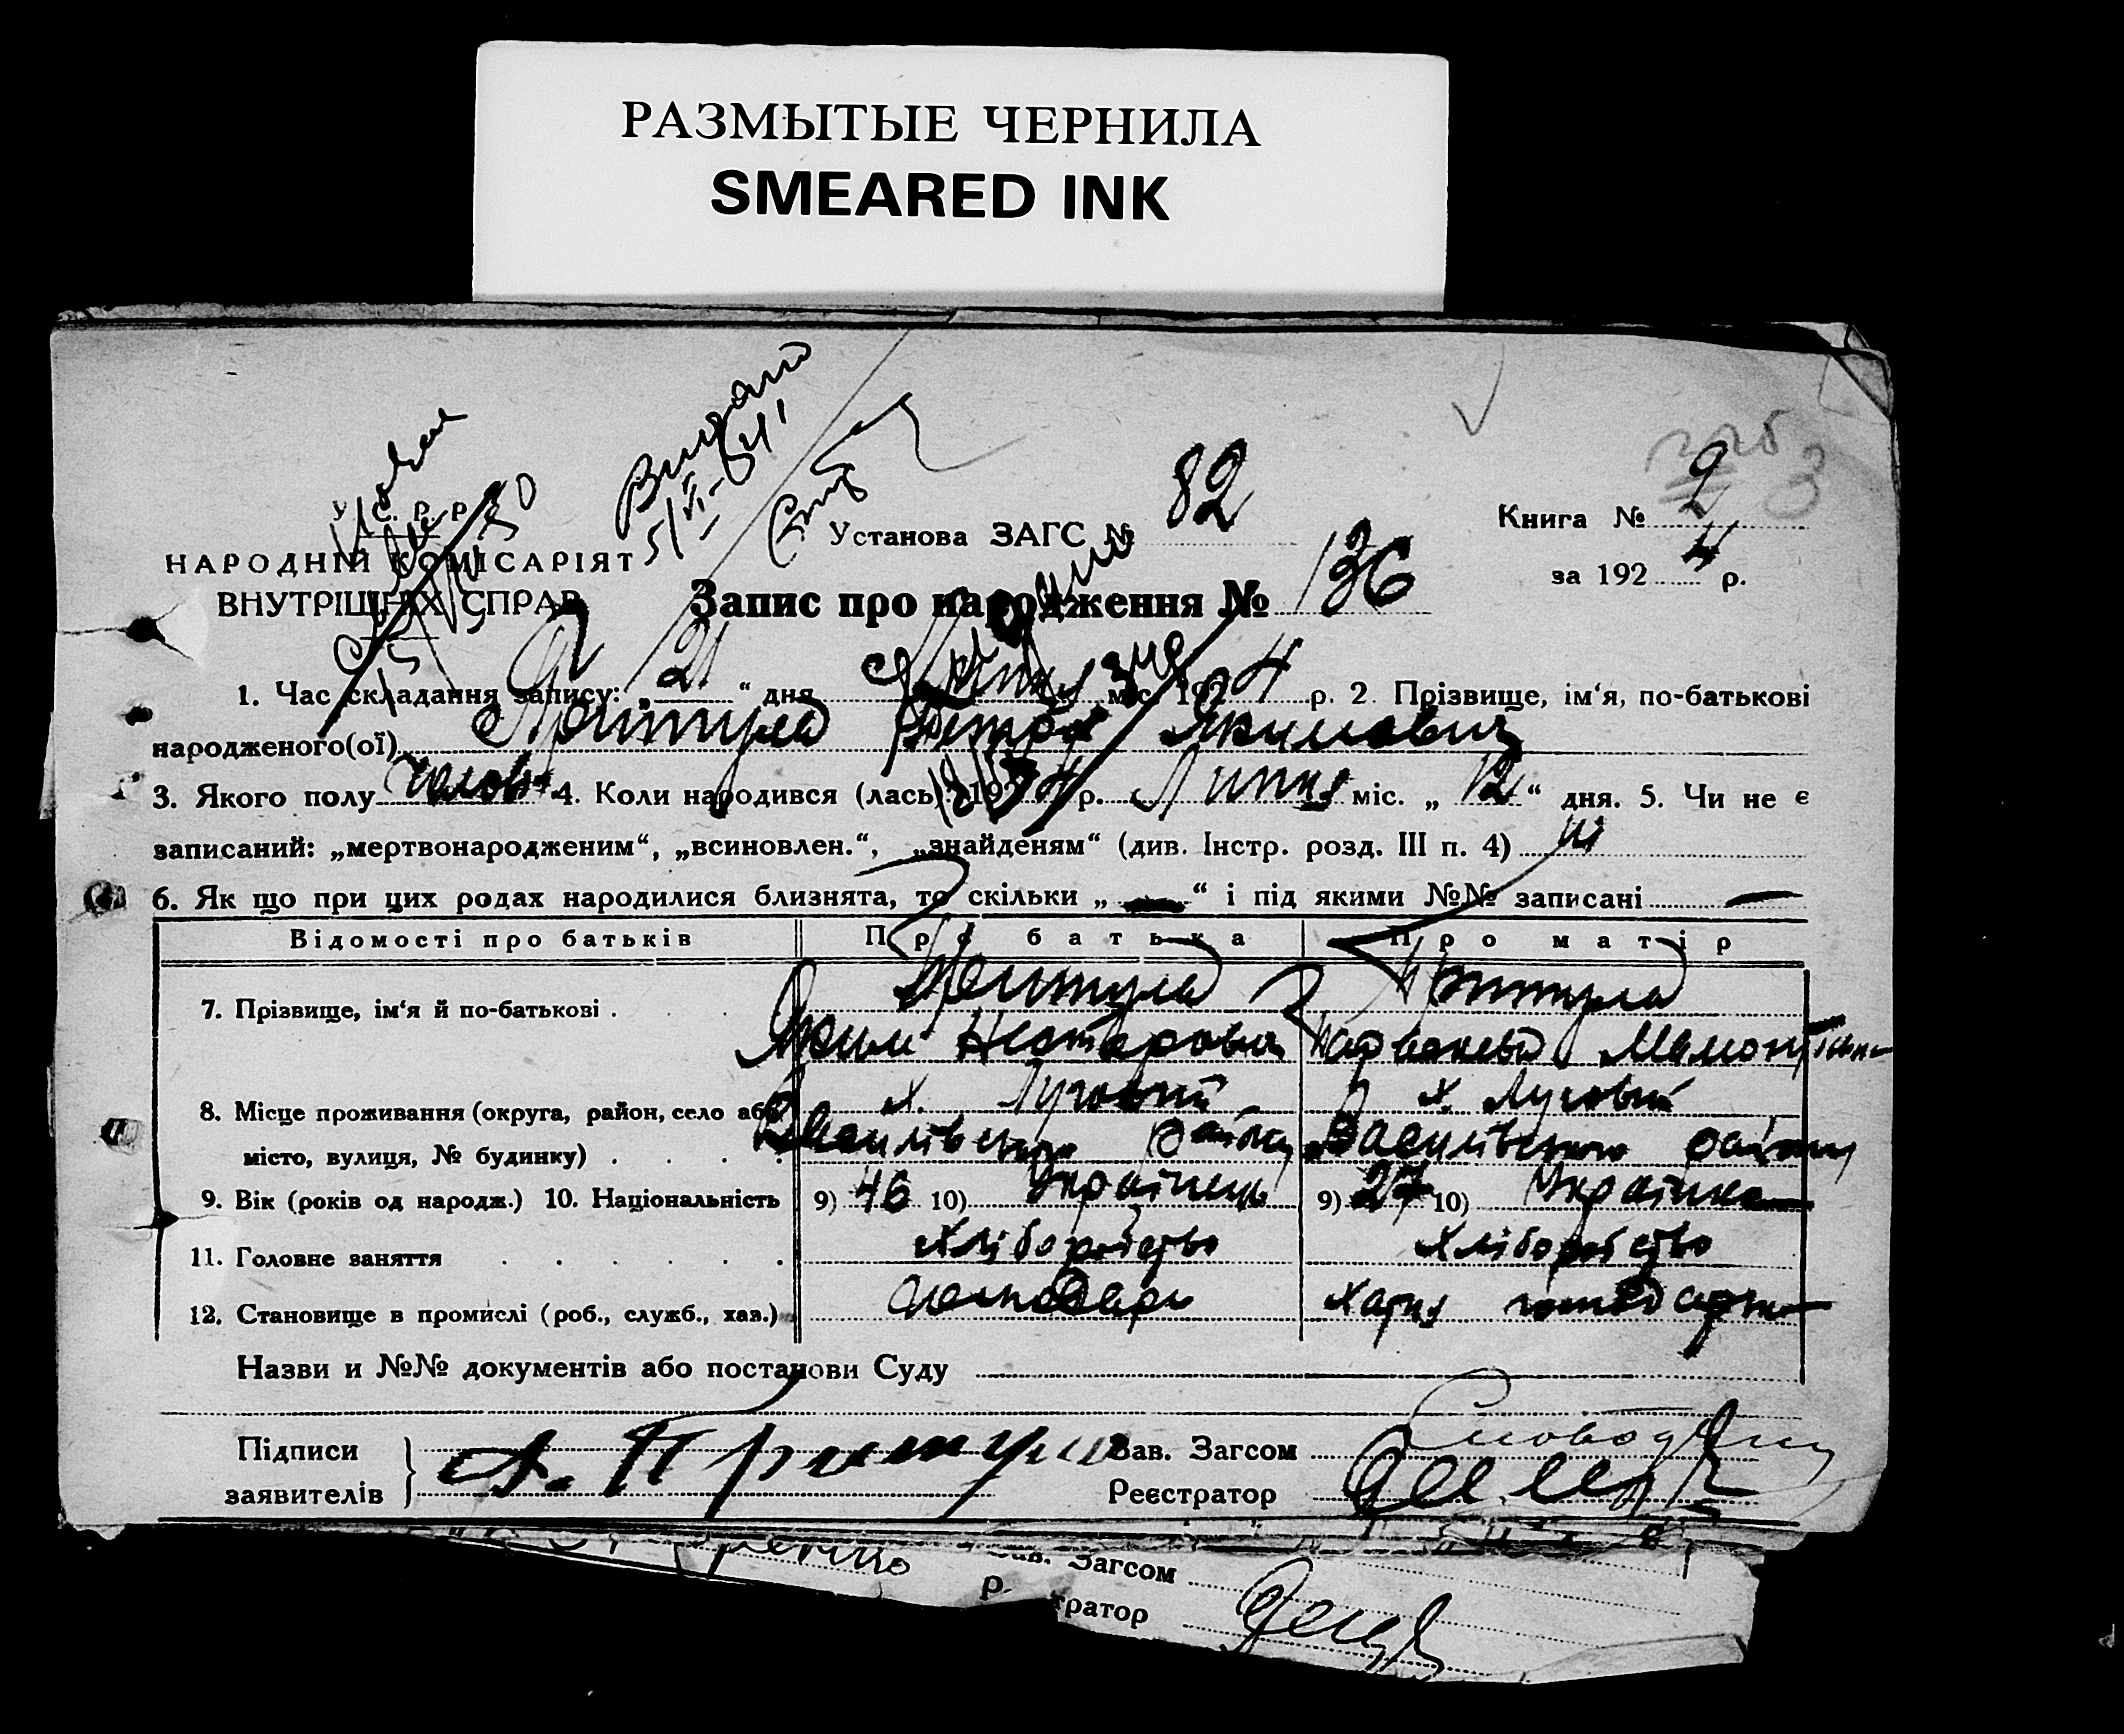 РАЗМЫТЫЕ ЧЕРНИЛА
SMEARED INK
У. С. Р. Р.
НАРОДНІЙ КОМІСАРІЯТ
ВНУТРІШНІХ СПРАВ
Видано
Установа ЗАГС № 82
Книга № 2
за 1924 р.
Запис про народження № 136
1. Час складання запису: „ 21 “ дня міс. 1924 р. 2. Прізвище, ім‘я, по-батькові
народженого(ої) Притула Петро Якимович
3. Якого полу чолов. 4. Коли народився (лась) 1924 р. Липня міс. „ 12 “ дня. 5. Чи не є
записаний: „мертвонародженим“, „всиновлен.“, „знайденям“ (див. Інстр. розд. III п. 4) ні
6. Як що при цих родах народилися близнята, то скільки „ — “ і під якими №№ записані —
Відомості про батьків Про батька Про матір
7. Прізвище, ім‘я й по-батькові . Притула Притула
Яким Нестерович Мамонтівна
8. Місце проживання (округа, район, село або х. Луговий х. Луговий
місто, вулиця, № будинку) . . . . Василівського району Василівського району
9. Вік (років од народж.) 10. Національність 9) 46 10) Українець 9) 27 10) Українка
11. Головне заняття . . . . . . Хліборобство Хліборобство
12. Становище в промислі (роб., служб., хаз.) Господарь Хатня
Назви и №№ документів або постанови Суду
Підписи Зав. Загсом
заявителів Я. Притула Реєстратор
Зав. Загсом
р. тратор